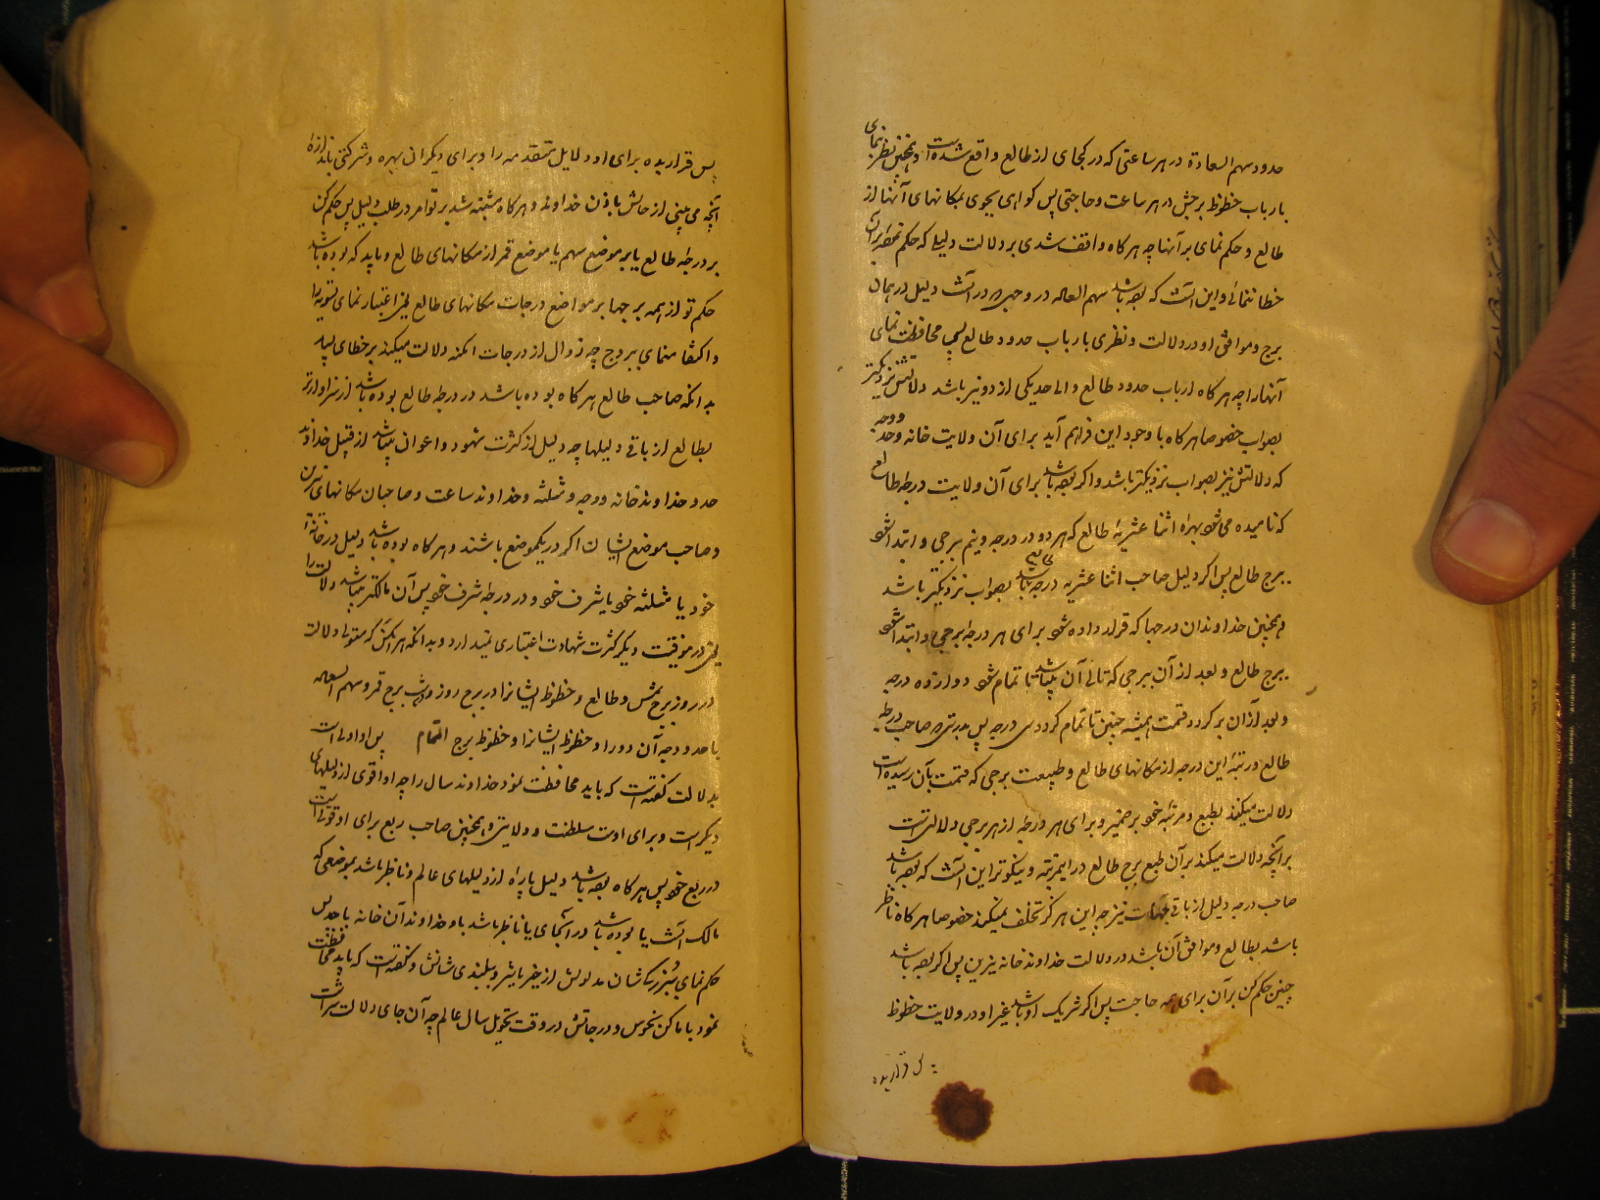 حدود سهم السعادة در هر ساعتی که در کجای از طالع واقع شده است و همچنین نظر نمای
بارباب حظوظ برجش در هر ساعت و حاجتی پس کواهی بجوی بمکانهای آنها از
طالع و حکم نمای بر آنها چه هر کاه واقف شدی بر دلالت دلیلی که حکم تو بر آن
خطا و این آنست که بوده باشد سهم السعاده در وجهی و در آنست دلیل در همان
برج و موافق او در دلالت و نظری بارباب حدود طالع پس محافظت نمای
آنها را چه هر کاه ارباب حدود طالع والی حد یکی از دو نیر باشد دلالتش نزدیکتر
بصواب خصوصا هر کاه با وجود این فراهم آید برای آن ولایت خانه و حد و وجه
که دلالتش نیز بصواب نزدیکتر باشد و اکر بوده باشد برای آن ولایت درجه طالع
که نامیده میشود بهراه اثنا عشریه طالع که هر دو در درجه و نیم برجی و ابتدا شود
ببرج طالع پس اکر دلیل صاحب اثنا عشریه درجه طالع باشد بصواب نزدیکتر باشد
و همچنین خداوندان درجها که قرار داده شود برای هر درجه برجی و ابتدا شود
ببرج طالع و بعد از آن ببرجی که تالی آن باشد تا تمام شود دوازده درجه
و بعد از آن بر کردد قسمت همیشه چنین تا تمام کردد سی درجه پس بدرستی که صاحب درجه
طالع و رتبه این درجه از مکانهای طالع و طبیعت برجی که قسمت بآن رسیده است
دلالت میکند بطبع و مرتبه خود بر ضمیر و برای هر درجه از هر برجی دلالتی است
بر آنچه دلالت میکند بر آن طبع برج طالع در این مرتبه و نیکوتر این آنست که بوده باشد
صاحب درجه دلیل از باقی جهات نیز چه این هرکز تخلف نمیکند خصوصا هر کاه ناظر
باشد بطالع و موافق آن باشد در دلالت خداوند خانه نیرین پس اکر بوده باشد
چنین حکم کن بر آن برای همه حاجت پس اکر شریک او باشد غیر او در ولایت حظوظ
پس قرار بده
پس قرار بده برای او دلایل متقدمه را و برای دیکران بهره و شرکتی باندازه
آنچه می بینی از حالش باذن خداوند و هر کاه مشتبه شد بر تو امر در طلب دلیل پس حکم کن
بر درجه طالع یا بر موضع سهم یا موضع قمر از مکانهای طالع و باید که بوده باشد
حکم تو از همه برجها بر مواضع درجات مکانهای طالع یعنی اعتبار نمای تسویه را
و اکتفا منمای ببروج چه زوال از درجات امکنه دلالت میکند بر خطای بسیار
بدانکه صاحب طالع هر کاه بوده باشد در درجه طالع بوده باشد از سزاوارتر
بطالع از باقی دلیلها چه دلیل از کثرت شهود و اعوان باشد از قبیل خداوند
حد و خداوند خانه و وجه و مثلثه و خداوند ساعت و صاحبان مکانهای نیرین
و صاحب موضع ایشان اکر در یکموضع باشند و هر کاه بوده باشد دلیل در خانه
خود یا مثلثه خود یا شرف خود و در درجه شرف خود پس آن مالکتر باشد دلالت را
یعنی در موقت دیکر کثرت شهادت اعتباری نیدارد و بدانکه هر که مستولی دلالت
در روز برج شمس و طالع و حظوظ ایشانرا در برج روز و شب برج قمر و سهم السعاده
با حدود وجه آن دو را و حظوظ ایشانرا و حظوظ برج پس او اولی است
بدلالت کفته است که باید محافظت نمود خداوند سال را چه او اقوی از دلیلهای
دیکر است و برای اوست سلطنت و ولایتی و همچنین صاحب ربع برای او قوتی است
در ربع خود پس هر کاه بوده باشد دلیل پاره از دلیلهای عالم و ناظر باشد بموضعی که
مالک آنست یا بوده باشد در آنجای یا ناظر باشد باو خداوند آن خانه یا حدس
حکم نمای و بزرکی شان مدلولش از خیر یا شر و بلندی شانش و کفته است که باید محافظت
نمود با ماکن نحوس و درجاتش در وقت تحویل سال عالم چه آن جای دلالت شر است